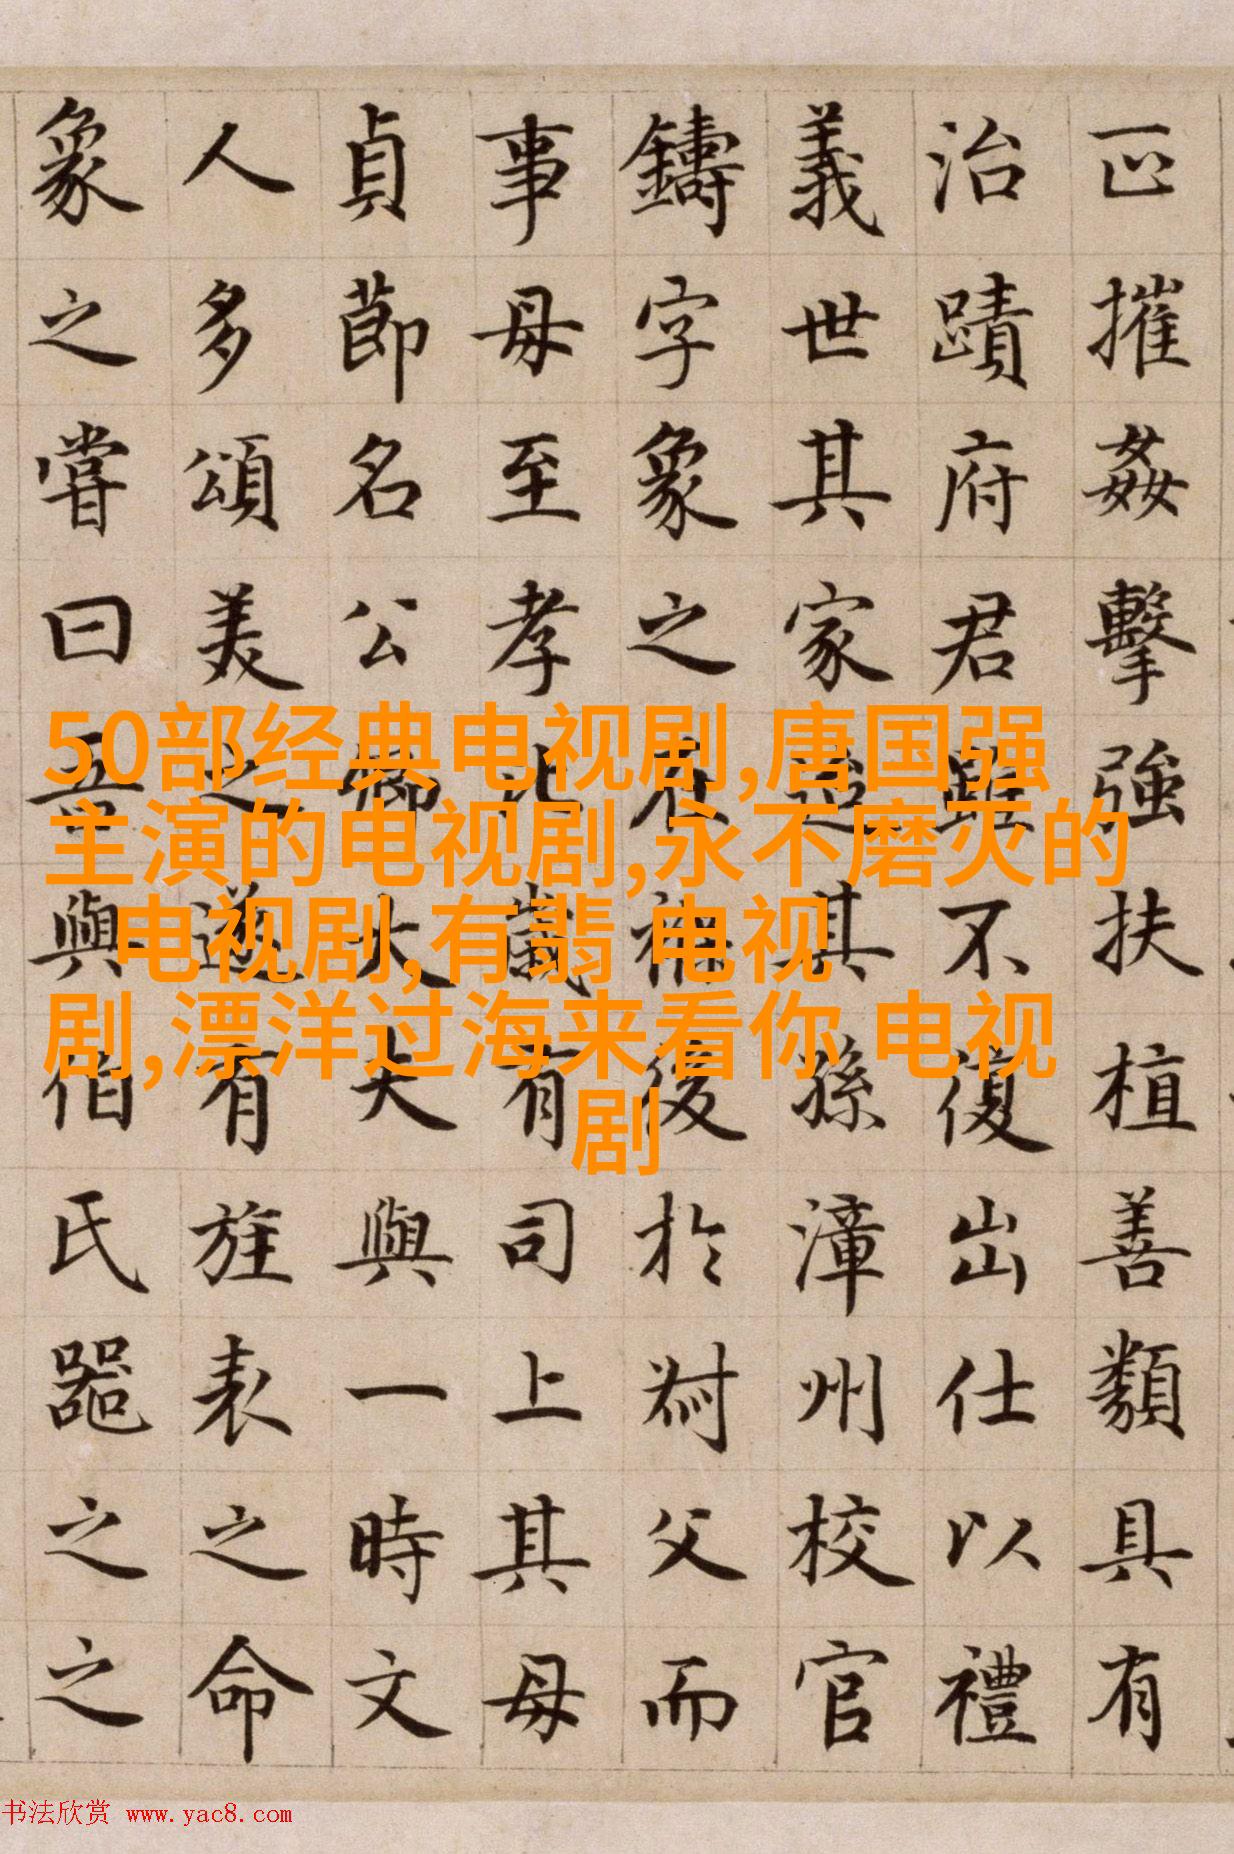 正摧姦擊強扶植善類具有
治蹟府君雖不復出仕以禮
義世其家迨其孫漳州校官
鑄字象之後於父而
事母至孝比歲有司上其母
貞節名公卿大夫與一時文
人多頌美之遂有旌表之命
象之嘗曰吾與伯氏器之之
50部经典电视剧,唐国强
主演的电视剧,永不磨灭的
电视剧,有翡 电视
剧,漂洋过海来看你 电视
剧
书法欣赏 www.yac8.com